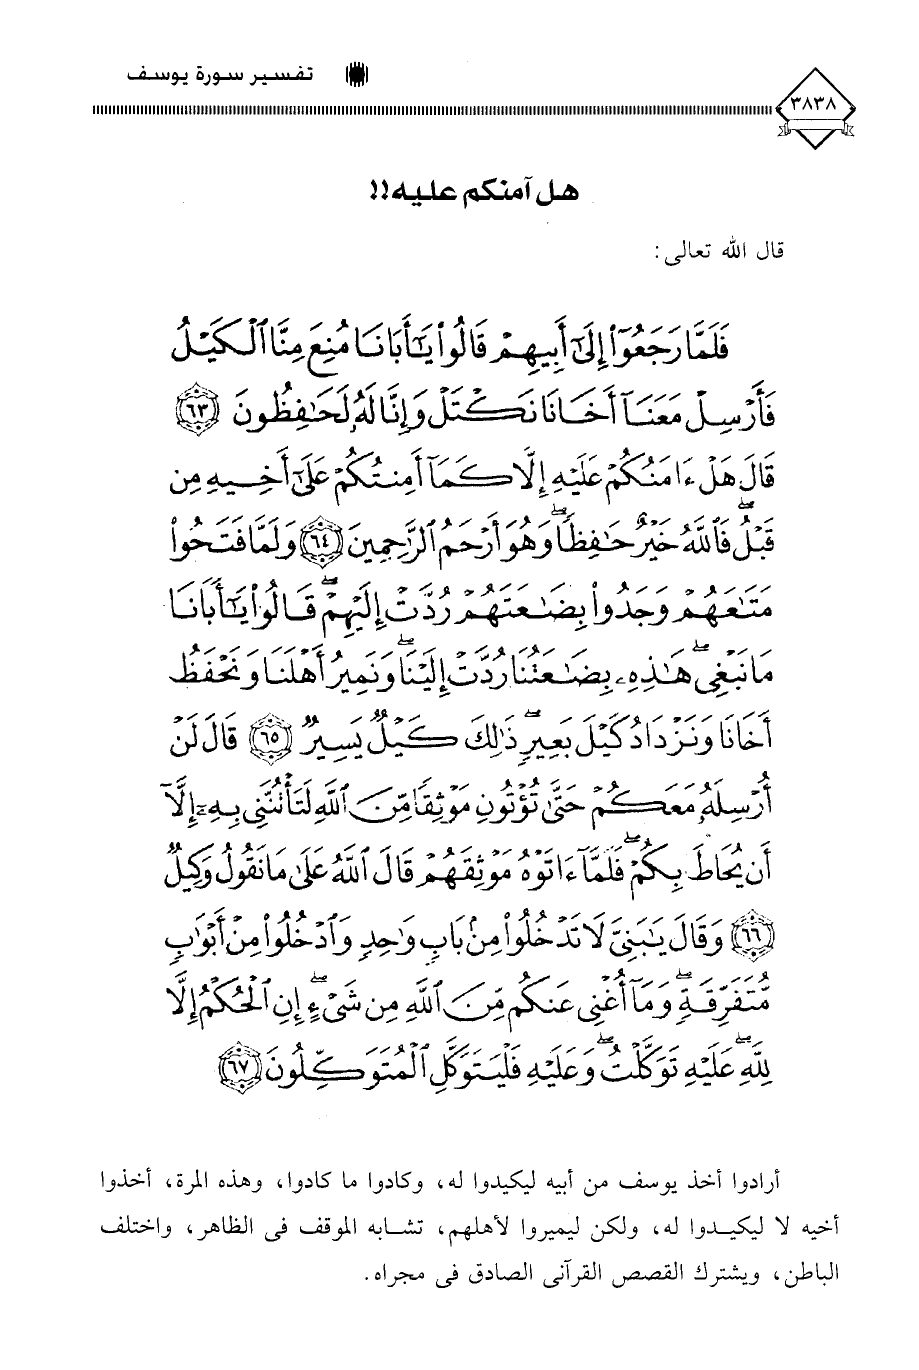 تفسير سورة يوسف
٣٨٣٨
هل آمنكم عليه!!
قال الله تعالى:
فَلَمَّا رَجَعُوٓا۟ إِلَىٰٓ أَبِيهِمْ قَالُوا۟ يَـٰٓأَبَانَا مُنِعَ مِنَّا ٱلْكَيْلُ
فَأَرْسِلْ مَعَنَآ أَخَانَا نَكْتَلْ وَإِنَّا لَهُۥ لَحَـٰفِظُونَ ٦٣
قَالَ هَلْ ءَامَنُكُمْ عَلَيْهِ إِلَّا كَمَآ أَمِنتُكُمْ عَلَىٰٓ أَخِيهِ مِن
قَبْلُ ۖ فَٱللَّهُ خَيْرٌ حَـٰفِظًا ۖ وَهُوَ أَرْحَمُ ٱلرَّٰحِمِينَ ٦٤ وَلَمَّا فَتَحُوا۟
مَتَـٰعَهُمْ وَجَدُوا۟ بِضَـٰعَتَهُمْ رُدَّتْ إِلَيْهِمْ ۖ قَالُوا۟ يَـٰٓأَبَانَا
مَا نَبْغِى ۖ هَـٰذِهِۦ بِضَـٰعَتُنَا رُدَّتْ إِلَيْنَا ۖ وَنَمِيرُ أَهْلَنَا وَنَحْفَظُ
أَخَانَا وَنَزْدَادُ كَيْلَ بَعِيرٍ ۖ ذَٰلِكَ كَيْلٌ يَسِيرٌ ٦٥ قَالَ لَنْ
أُرْسِلَهُۥ مَعَكُمْ حَتَّىٰ تُؤْتُونِ مَوْثِقًا مِّنَ ٱللَّهِ لَتَأْتُنَّنِى بِهِۦٓ إِلَّآ
أَن يُحَاطَ بِكُمْ ۖ فَلَمَّآ ءَاتَوْهُ مَوْثِقَهُمْ قَالَ ٱللَّهُ عَلَىٰ مَا نَقُولُ وَكِيلٌ
٦٦ وَقَالَ يَـٰبَنِىَّ لَا تَدْخُلُوا۟ مِنۢ بَابٍ وَٰحِدٍ وَٱدْخُلُوا۟ مِنْ أَبْوَٰبٍ
مُّتَفَرِّقَةٍ ۖ وَمَآ أُغْنِى عَنكُم مِّنَ ٱللَّهِ مِن شَىْءٍ ۖ إِنِ ٱلْحُكْمُ إِلَّا
لِلَّهِ ۖ عَلَيْهِ تَوَكَّلْتُ ۖ وَعَلَيْهِ فَلْيَتَوَكَّلِ ٱلْمُتَوَكِّلُونَ ٦٧
أرادوا أخذ يوسف من أبيه ليكيدوا له، وكادوا ما كادوا، وهذه المرة، أخذوا
أخيه لا ليكيدوا له، ولكن ليميروا لأهلهم، تشابه الموقف فى الظاهر، واختلف
الباطن، ويشترك القصص القرآنى الصادق فى مجراه.